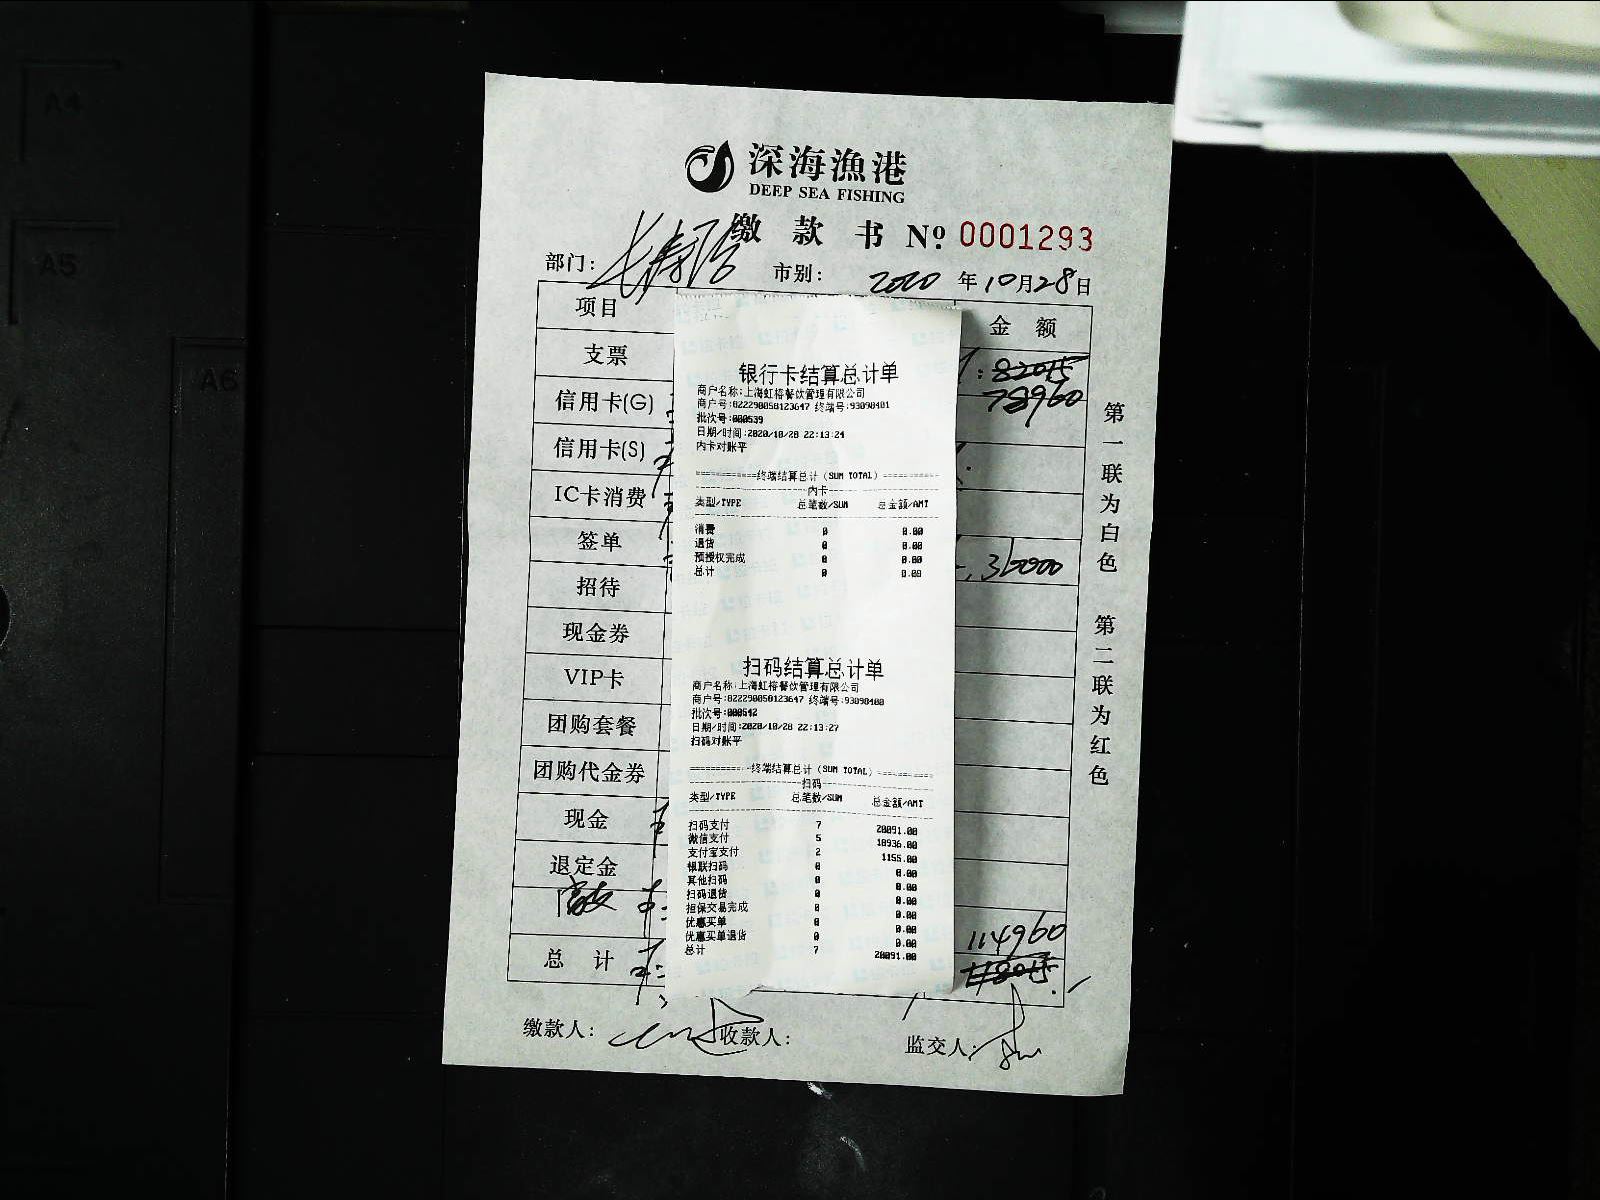 A4
A5
A6
深海漁港
DEEP SEA FISHING
缴 款 书 Nº 0001293
部门: 长寿路 市别: 2020 年 10 月 28 日
项目 金 额
支票 82015
信用卡(G) 78960
信用卡(S)
IC卡消费
签单 36000
招待
现金券
VIP卡
团购套餐
团购代金券
现金
退定金
114960
总 计 118015
缴款人: 收款人: 监交人:
第一联为白色 第二联为红色
银行卡结算总计单
商户名称:上海虹榕餐饮管理有限公司
商户号:822290058123647 终端号:93090401
批次号:000539
日期/时间:2020/10/28 22:13:24
内卡对账平
===========终端结算总计(SUM TOTAL)==========
内卡
类型/TYPE 总笔数/SUM 总金额/AMT
消费 0 0.00
退货 0 0.00
预授权完成 0 0.00
总计 0 0.00
扫码结算总计单
商户名称:上海虹榕餐饮管理有限公司
商户号:822290058123647 终端号:93090400
批次号:000542
日期/时间:2020/10/28 22:13:27
扫码对账平
===========终端结算总计(SUM TOTAL)==========
扫码
类型/TYPE 总笔数/SUM 总金额/AMT
扫码支付 7 20091.00
微信支付 5 18936.00
支付宝支付 2 1155.00
银联扫码 0 0.00
其他扫码 0 0.00
扫码退货 0 0.00
担保交易完成 0 0.00
优惠买单 0 0.00
优惠买单退货 0 0.00
总计 7 20091.00